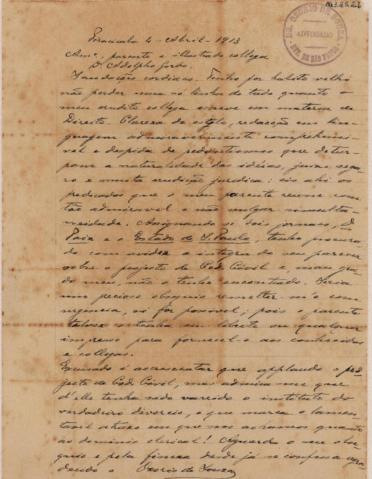 Piracicaba 4 - Abril - 1913
Amº, parente e illustrado collega
Dr. Adolpho Gordo.
Saudações cordiaes. Tenho por habito velho
não perder uma só linha de tudo quanto o
meu erudito collega escreve em materia de
Direito. Clareza de estylo, redacção em lin-
guagem admiravelmente comprehensi-
vel e despida de que detur-
pam a naturalidade das idéias, juizo segu-
ro e muita erudição juridica: eis ahi os
predicados que o meu parente reune em
tão admiravel e não vulgar simulta-
neidade. Assignando os dois jornaes, O
Paiz e o Estado de S. Paulo, tenho procura-
do com avidez a integra do seu parecer
sobre o projecto do Cod. Civil e, mau gra-
do meu, não o tenho encontrado. Seria
um precioso obsequio remetter-m'o com
urgencia, si for possivel; pois o parente
talvez o tenha em folheto ou qualquer
impresso para fornecel-o aos conhecidos
e collegas.
Escusado é accrescentar que applaudo o pro-
jecto do Cod. Civil, mas admira-me que
d'elle tenha sido varrido o instituto do
verdadeiro divorcio, o que marca o lamen-
tavel atraso em que nos achamos quanto
ao dominio clerical! Aguardo o seu obse-
quio e pela fineza desde já se confessa agra-
decido o Osorio de Souza
DR. OSORIO DE SOUZA
ADVOGADO
EST. DE SÃO PAULO